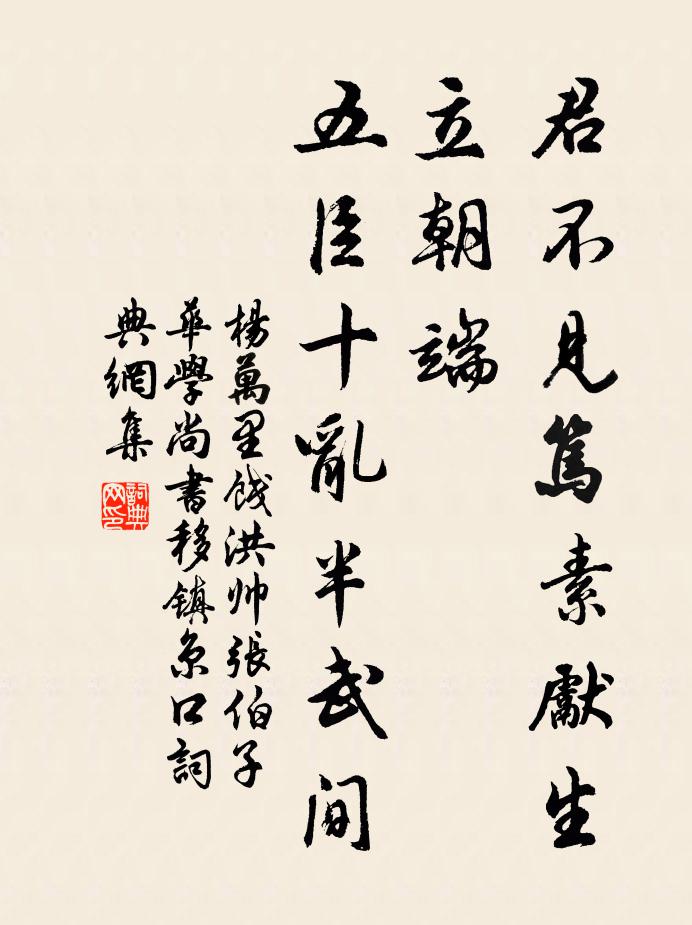 君不見篤素獻生
立朝端
五臣十亂半武間
楊萬里餞洪帅張伯子
華學尚書移鎮京口詞
典網集
詞典
网印